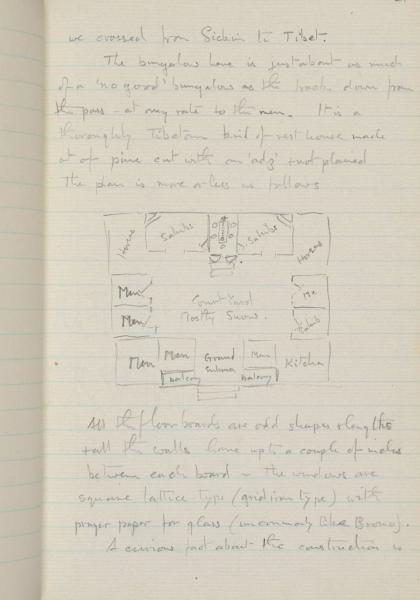 we crossed from Sickim to Tibet.
The bungalow here is just about as much
of a 'no good' bungalow as the track down from
the pass - at any rate to the men. It is a
thoroughly Tibetan kind of rest house made
out of pine cut with an 'adz' & not planed
The plan is more or less as follows
Horses Sahibs Sahibs Horses
Men Courtyard Me
Men Mostly Snow. Sahib
Men Men Ground Men Kitchen
balcony balcony
All the floor boards are odd shapes along the
& all the walls have upto a couple of inches
between each board - The windows are
square lattice type (gridiron type) with
prayer paper for glass (uncommonly like Bromo).
A curious fact about the construction is